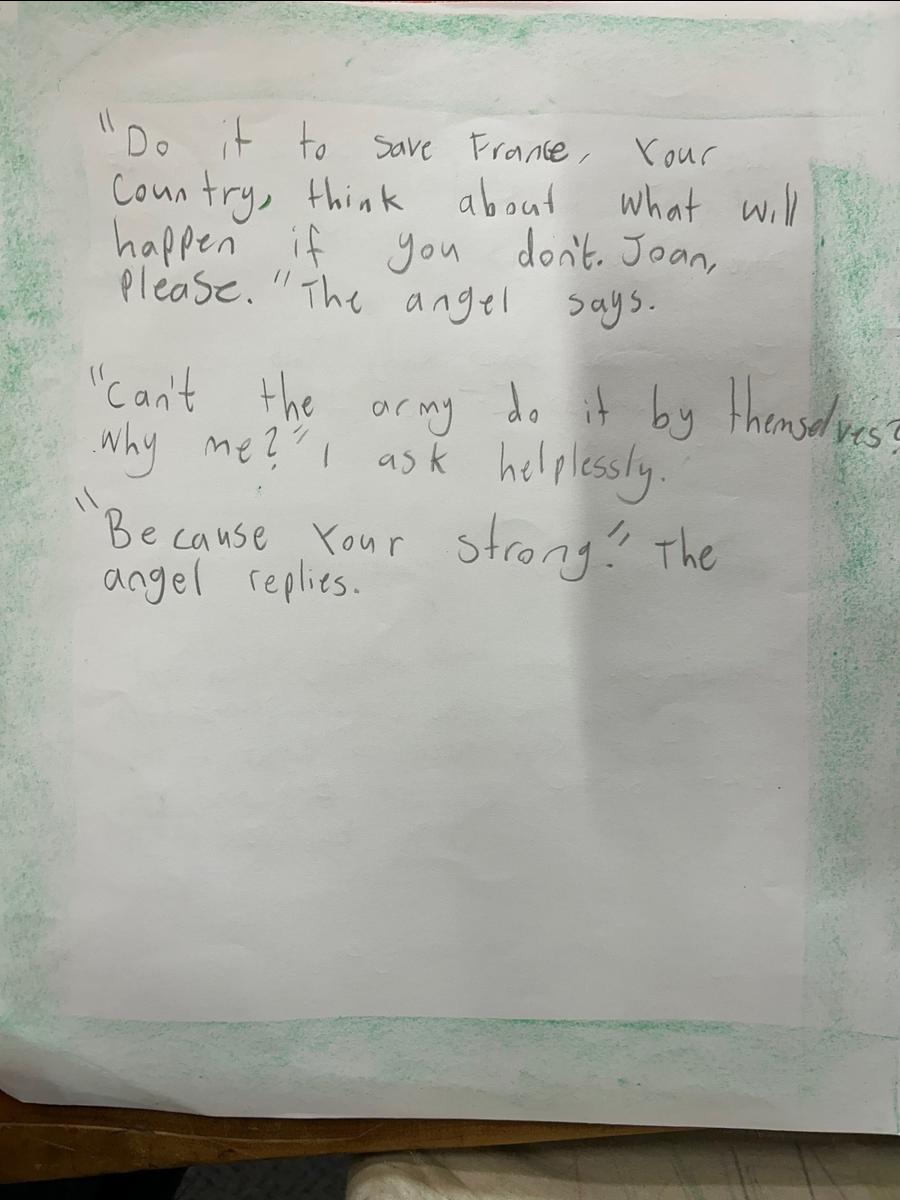 "Do it to save France, Your
Country, think about what will
happen if you don't. Joan,
please." The angel says.
"Can't the army do it by themselves?
why me?" I ask helplessly.
"Because Your strong." The
angel replies.